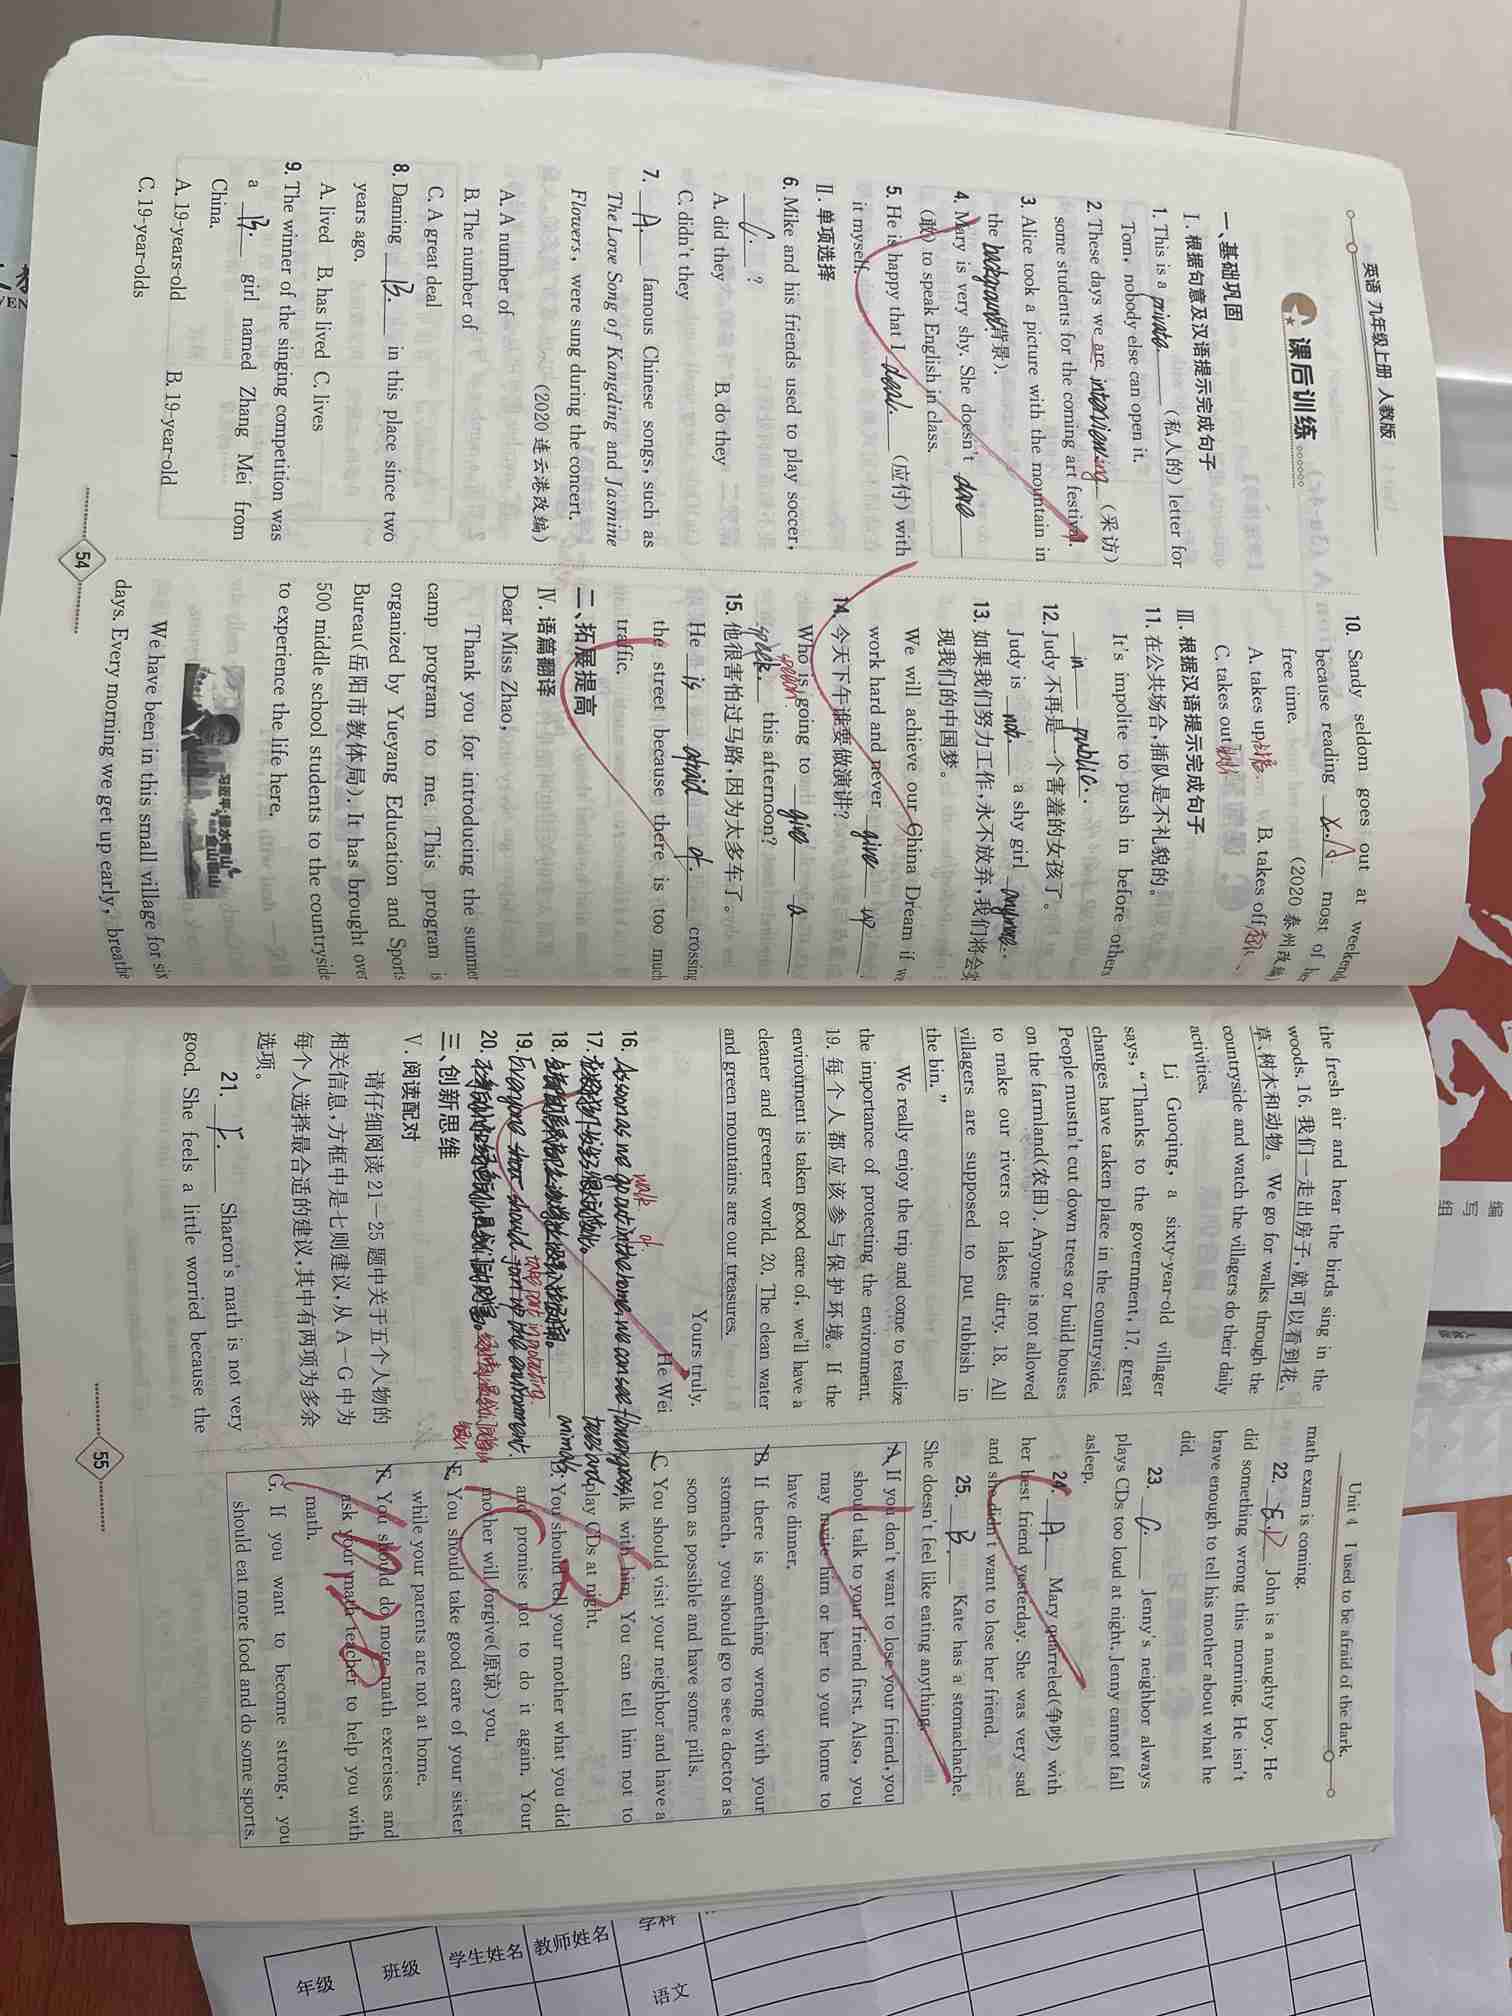 英语 九年级上册 人教版
课后训练
一、基础巩固
Ⅰ. 根据句意及汉语提示完成句子
1. This is a private (私人的) letter for
Tom, nobody else can open it.
2. These days we are interviewing (采访)
some students for the coming art festival.
3. Alice took a picture with the mountain in
the background(背景).
4. Mary is very shy. She doesn't dare
(敢) to speak English in class.
5. He is happy that I deal. (应付) with
it myself.
Ⅱ. 单项选择
6. Mike and his friends used to play soccer,
C. ?
A. did they B. do they
C. didn't they
7. A famous Chinese songs, such as
The Love Song of Kangding and Jasmine
Flowers, were sung during the concert.
(2020 连云港改编)
A. A number of
B. The number of
C. A great deal
8. Daming B. in this place since two
years ago.
A. lived B. has lived C. lives
9. The winner of the singing competition was
a B. girl named Zhang Mei from
China.
A. 19-years-old B. 19-year-old
C. 19-year-olds
54
10. Sandy seldom goes out at weekend
because reading A most of
free time. (2020 泰州改编)
A. takes up B. takes off
C. takes out
Ⅲ. 根据汉语提示完成句子
11. 在公共场合,插队是不礼貌的。
It's impolite to push in before others
in public.
12. Judy 不再是一个害羞的女孩了。
Judy is not. a shy girl anymore.
13. 如果我们努力工作,永不放弃,我们将会实
现我们的中国梦。
We will achieve our China Dream if we
work hard and never give up.
14. 今天下午谁要做演讲?
Who is going to give a
speech this afternoon?
15. 他很害怕过马路,因为太多车了。
He is afraid of. crossing
the street because there is too much
traffic.
二、拓展提高
Ⅳ. 语篇翻译
Dear Miss Zhao,
Thank you for introducing the summer
camp program to me. This program is
organized by Yueyang Education and Sports
Bureau(岳阳市教体局). It has brought over
500 middle school students to the countryside
to experience the life here.
We have been in this small village for six
days. Every morning we get up early, breathe
the fresh air and hear the birds sing in the
woods. 16. 我们一走出房子,就可以看到花、
草、树木和动物。 We go for walks through the
countryside and watch the villagers do their daily
activities.
Li Guoqing, a sixty-year-old villager
says, "Thanks to the government, 17. great
changes have taken place in the countryside.
People mustn't cut down trees or build houses
on the farmland(农田). Anyone is not allowed
to make our rivers or lakes dirty. 18. All
villagers are supposed to put rubbish in
the bin."
We really enjoy the trip and come to realize
the importance of protecting the environment.
19. 每个人都应该参与保护环境。 If the
environment is taken good care of, we'll have a
cleaner and greener world. 20. The clean water
and green mountains are our treasures.
Yours truly,
He Wei
16. As soon as we go out the home we can see flowers, grass,
trees and
animals.
17.
18.
19. Everyone should join up the environment.
take part in protecting
20.
三、创新思维
Ⅴ. 阅读配对
请仔细阅读 21—25 题中关于五个人物的
相关信息,方框中是七则建议,从 A—G 中为
每个人选择最合适的建议,其中有两项为多余
选项。
21. F. Sharon's math is not very
good. She feels a little worried because the
55
Unit 4 I used to be afraid of the dark.
math exam is coming.
22. D John is a naughty boy. He
did something wrong this morning. He isn't
brave enough to tell his mother about what he
did.
23. C. Jenny's neighbor always
plays CDs too loud at night. Jenny cannot fall
asleep.
24. A. Mary quarreled(争吵) with
her best friend yesterday. She was very sad
and she didn't want to lose her friend.
25. B. Kate has a stomachache.
She doesn't feel like eating anything.
A. If you don't want to lose your friend, you
should talk to your friend first. Also, you
may invite him or her to your home to
have dinner.
B. If there is something wrong with your
stomach, you should go to see a doctor as
soon as possible and have some pills.
C. You should visit your neighbor and have a
talk with him. You can tell him not to
play CDs at night.
D. You should tell your mother what you did
and promise not to do it again. Your
mother will forgive(原谅) you.
E. You should take good care of your sister
while your parents are not at home.
F. You should do more math exercises and
ask your math teacher to help you with
math.
G. If you want to become strong, you
should eat more food and do some sports.
年级
班级
学生姓名
教师姓名
学科
语文
编写组